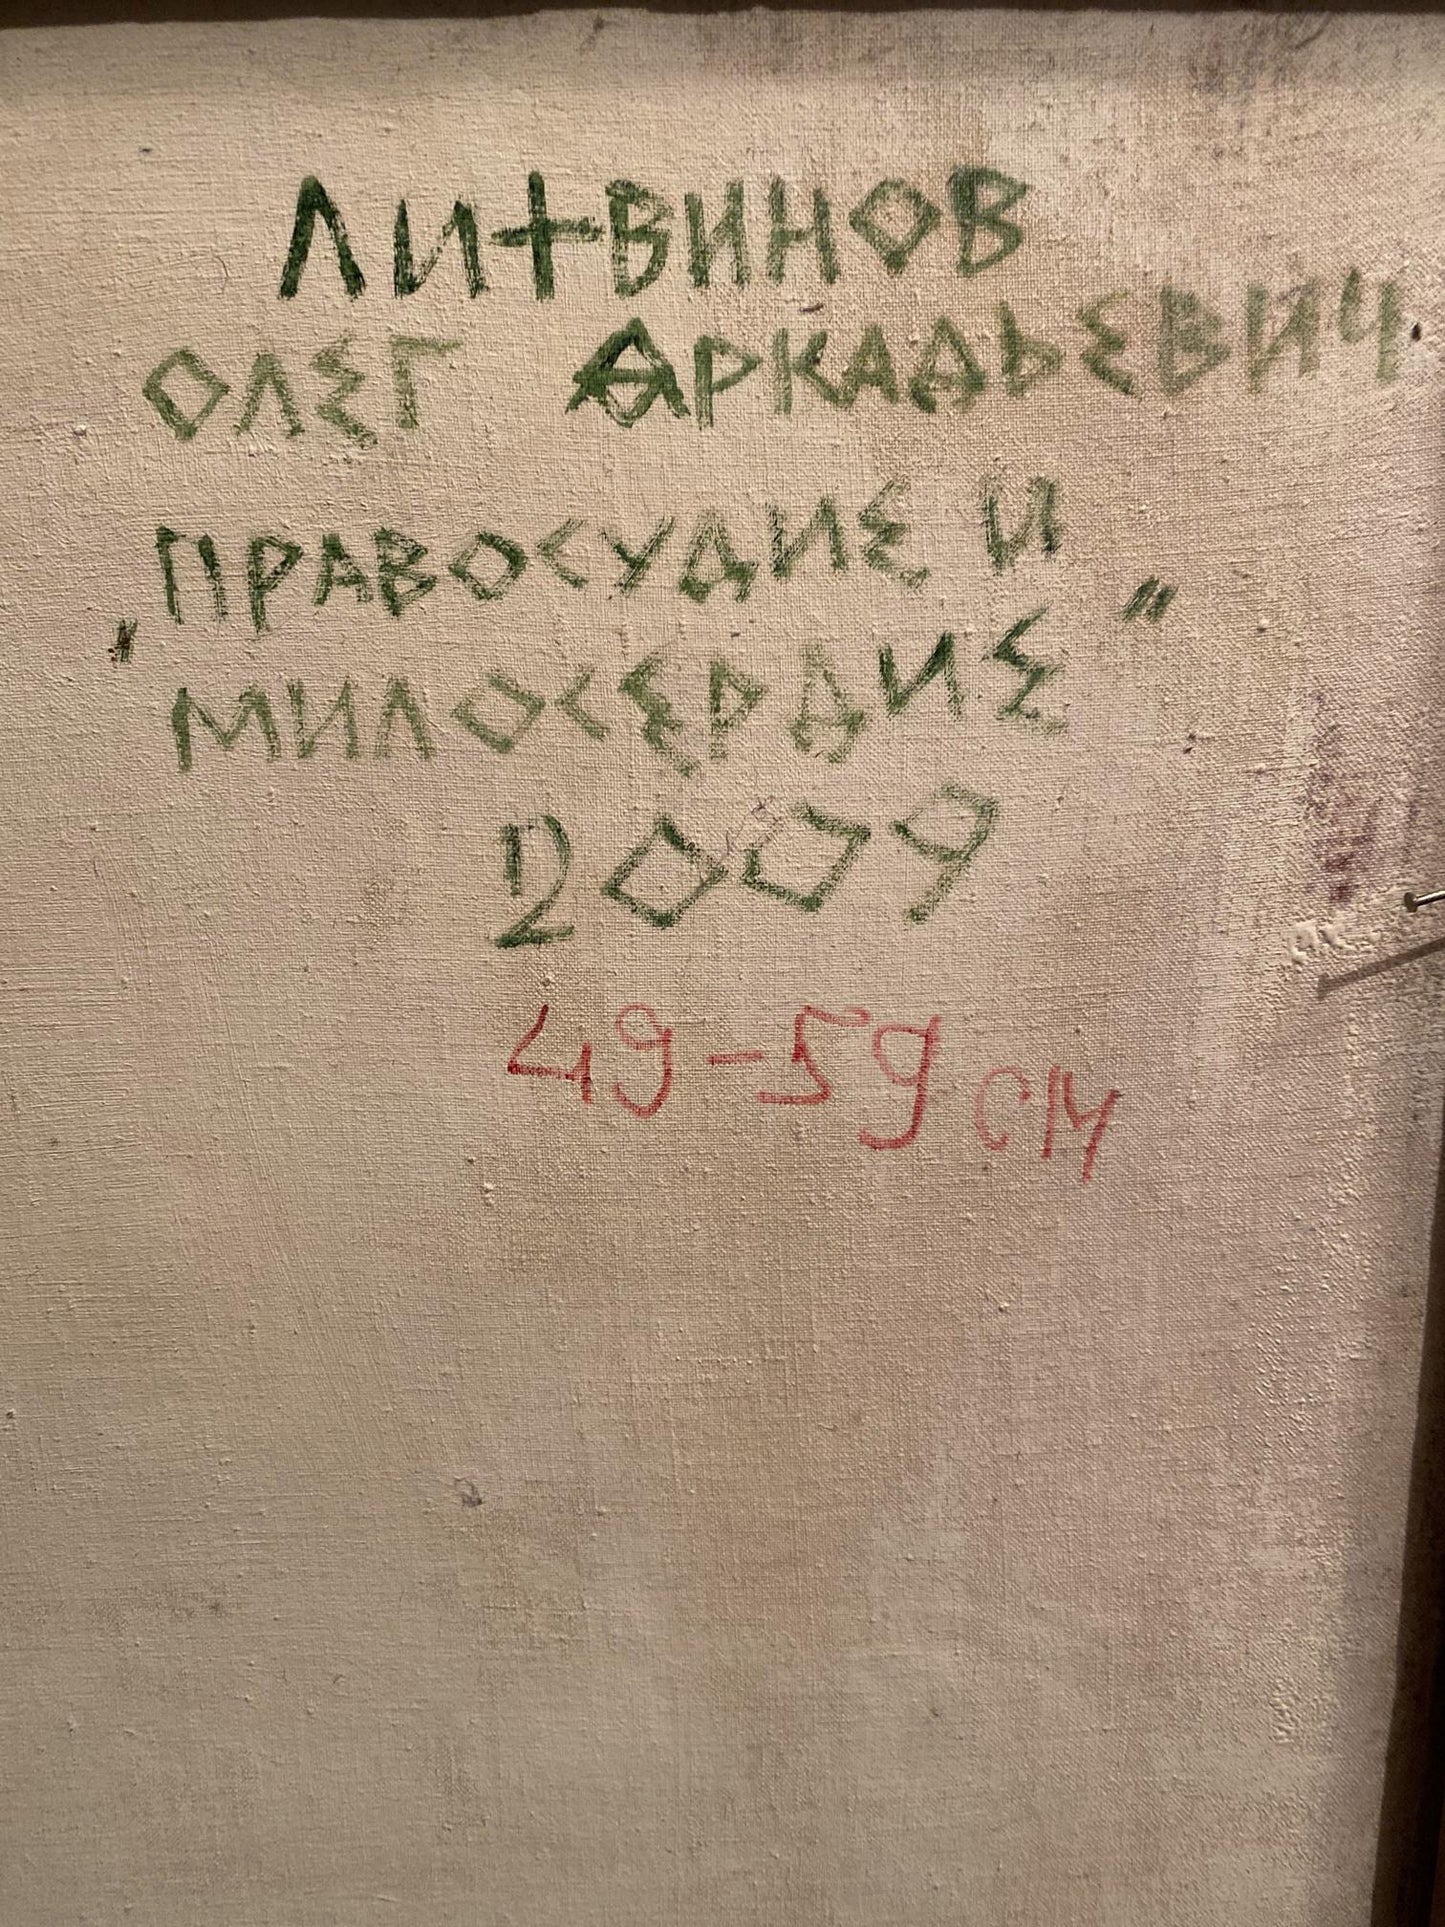 ЛИТВИНОВ
ОЛЕГ АРКАДЬЕВИЧ.
„ПРАВОСУДИЕ И
МИЛОСЕРДИЕ"
2009
49-59 см